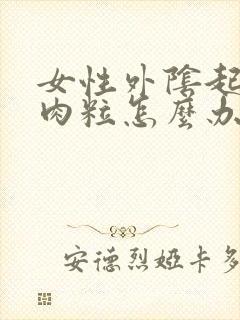 女性外陰起
肉粒怎麼办
安德烈婭卡多